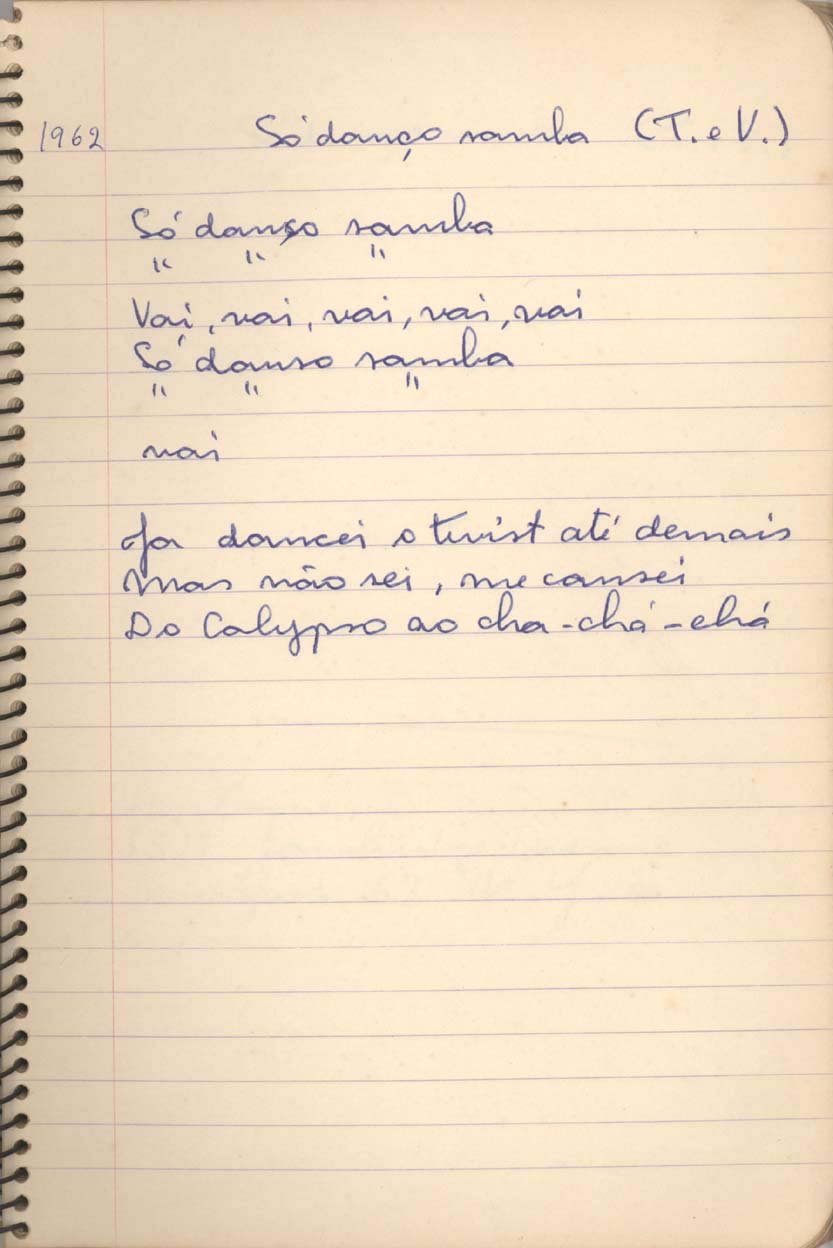 1962 Só danço samba (T. e V.)
Só danço samba
" " "
Vai, vai, vai, vai, vai
Só danso samba
" " "
vai
Ja dancei o twist até demais
Mas não sei, me cansei
Do Calypso ao cha-chá-chá